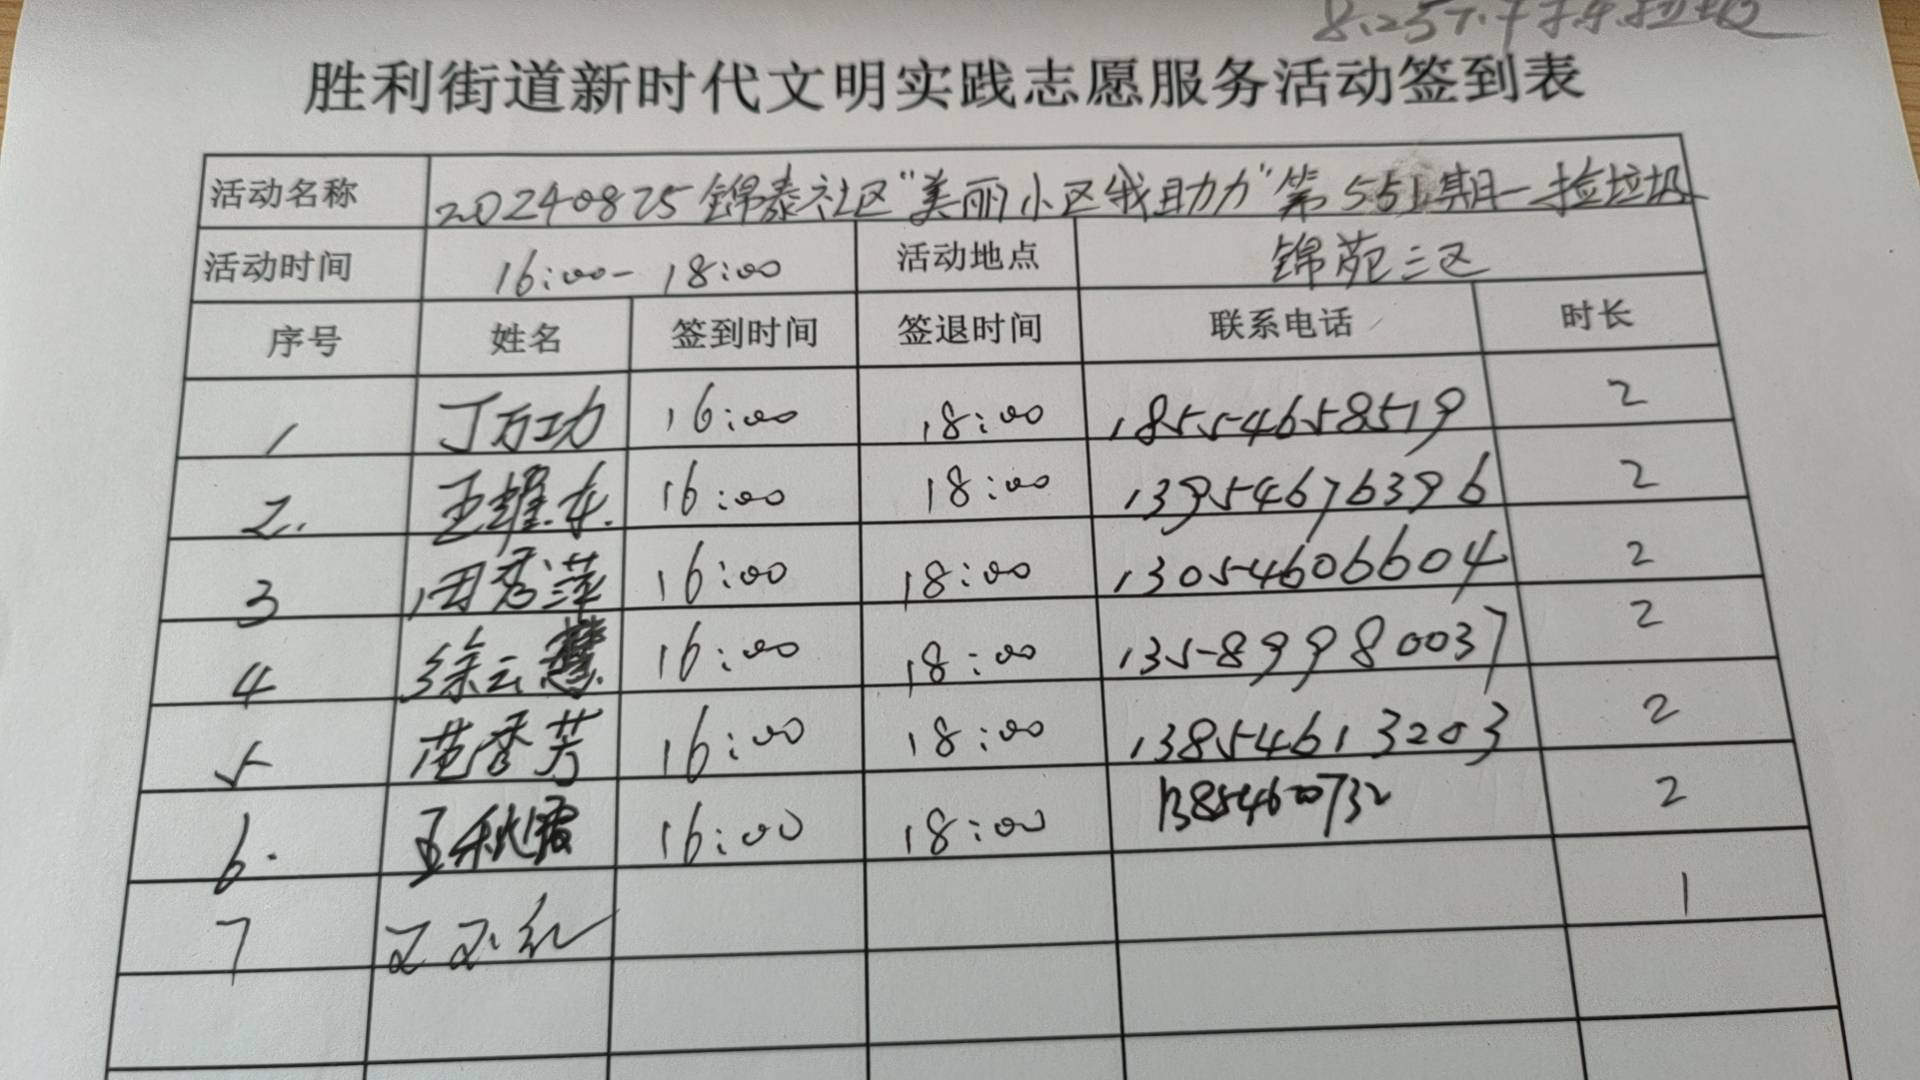 8.25下午
胜利街道新时代文明实践志愿服务活动签到表
活动名称 20240825锦泰社区"美丽小区我助力"第551期-捡垃圾
活动时间 16:00-18:00 活动地点 锦苑三区
序号 姓名 签到时间 签退时间 联系电话 时长
1 丁万功 16:00 18:00 18554658519 2
2. 王耀东 16:00 18:00 13954676396 2
3 田秀萍 16:00 18:00 13054606604 2
4 徐云慧 16:00 18:00 13589980037 2
5 范香芳 16:00 18:00 13854613203 2
6. 王秋霞 16:00 18:00 13854600732 2
7 1